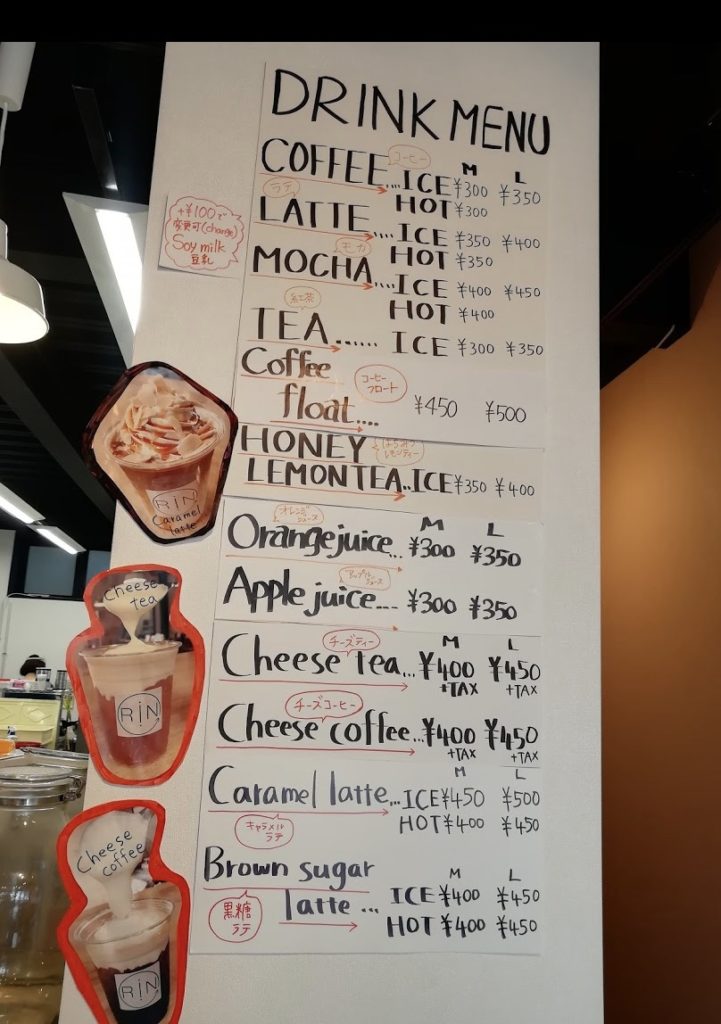 DRINK MENU
コーヒー
M L
COFFEE....ICE ¥300 ¥350
HOT ¥300
ラテ
LATTE....ICE ¥350 ¥400
HOT ¥350
モカ
MOCHA....ICE ¥400 ¥450
HOT ¥400
+¥100で
変更可(change)
Soy milk
豆乳
紅茶
TEA...... ICE ¥300 ¥350
Coffee
float.... ¥450 ¥500
コーヒー
フロート
HONEY
はちみつ
レモンティー
LEMON TEA..ICE ¥350 ¥400
オレンジ
ジュース
M L
Orange juice... ¥300 ¥350
アップル
ジュース
Apple juice.... ¥300 ¥350
チーズティー
M L
Cheese tea... ¥400 ¥450
+TAX +TAX
チーズコーヒー
Cheese coffee.. ¥400 ¥450
+TAX +TAX
M L
Caramel latte...ICE ¥450 ¥500
HOT ¥400 ¥450
キャラメル
ラテ
Brown sugar
M L
latte ... ICE ¥400 ¥450
HOT ¥400 ¥450
黒糖
ラテ
RiN
Caramel
latte
Cheese
tea
RiN
Cheese
coffee
RiN